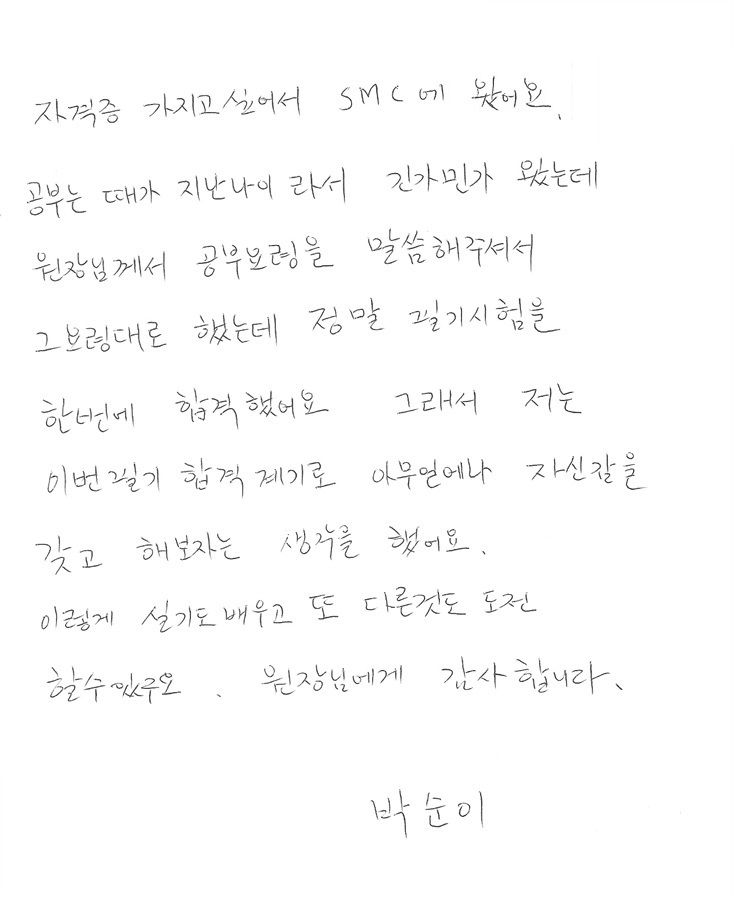 자격증 가지고싶어서 SMC에 왔어요.
공부는 때가 지난나이 라서 긴가민가 왔는데
원장님께서 공부요령을 말씀해주셔서
그요령대로 했는데 정말 필기시험을
한번에 합격했어요 그래서 저는
이번필기 합격 계기로 아무일에나 자신감을
갖고 해보자는 생각을 했어요.
이렇게 실기도배우고 또 다른것도 도전
할수있구요. 원장님에게 감사합니다.
박순이